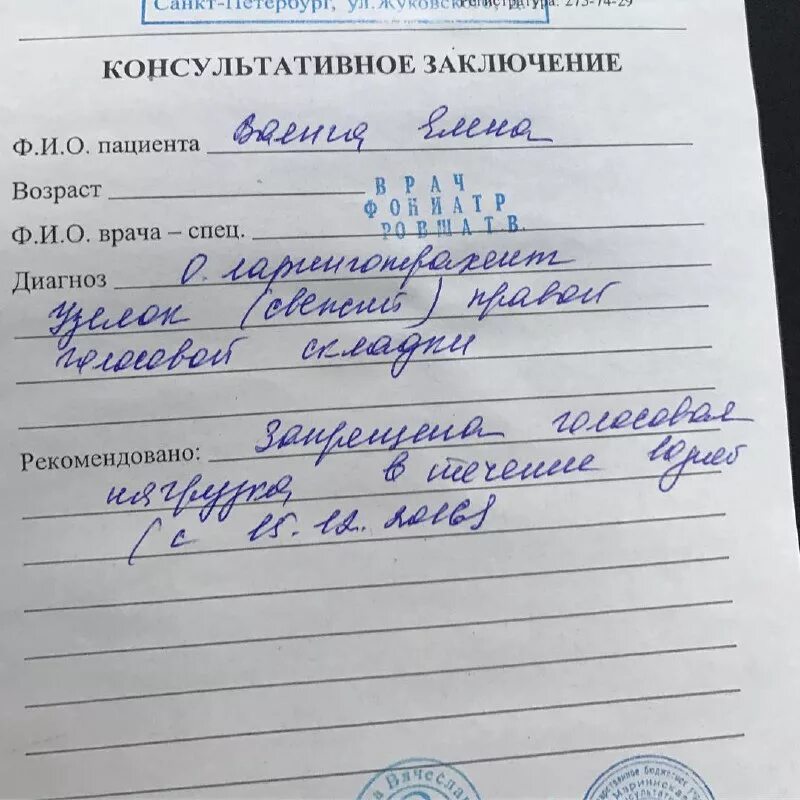 Санкт-Петербург, ул. Жуковск
Регистратура: 275-74-29
КОНСУЛЬТАТИВНОЕ ЗАКЛЮЧЕНИЕ
Ф.И.О. пациента Ваенга Елена
Возраст
ВРАЧ
ФОНИАТР
РОВША Т.В.
Ф.И.О. врача – спец.
Диагноз О. ларинготрахеит
Узелок (свежий) правой
голосовой складки
Рекомендовано: Запрещена голосовая
нагрузка в течение 10 дней
(с 15.12.2016)
Вячеслав
Мариинская